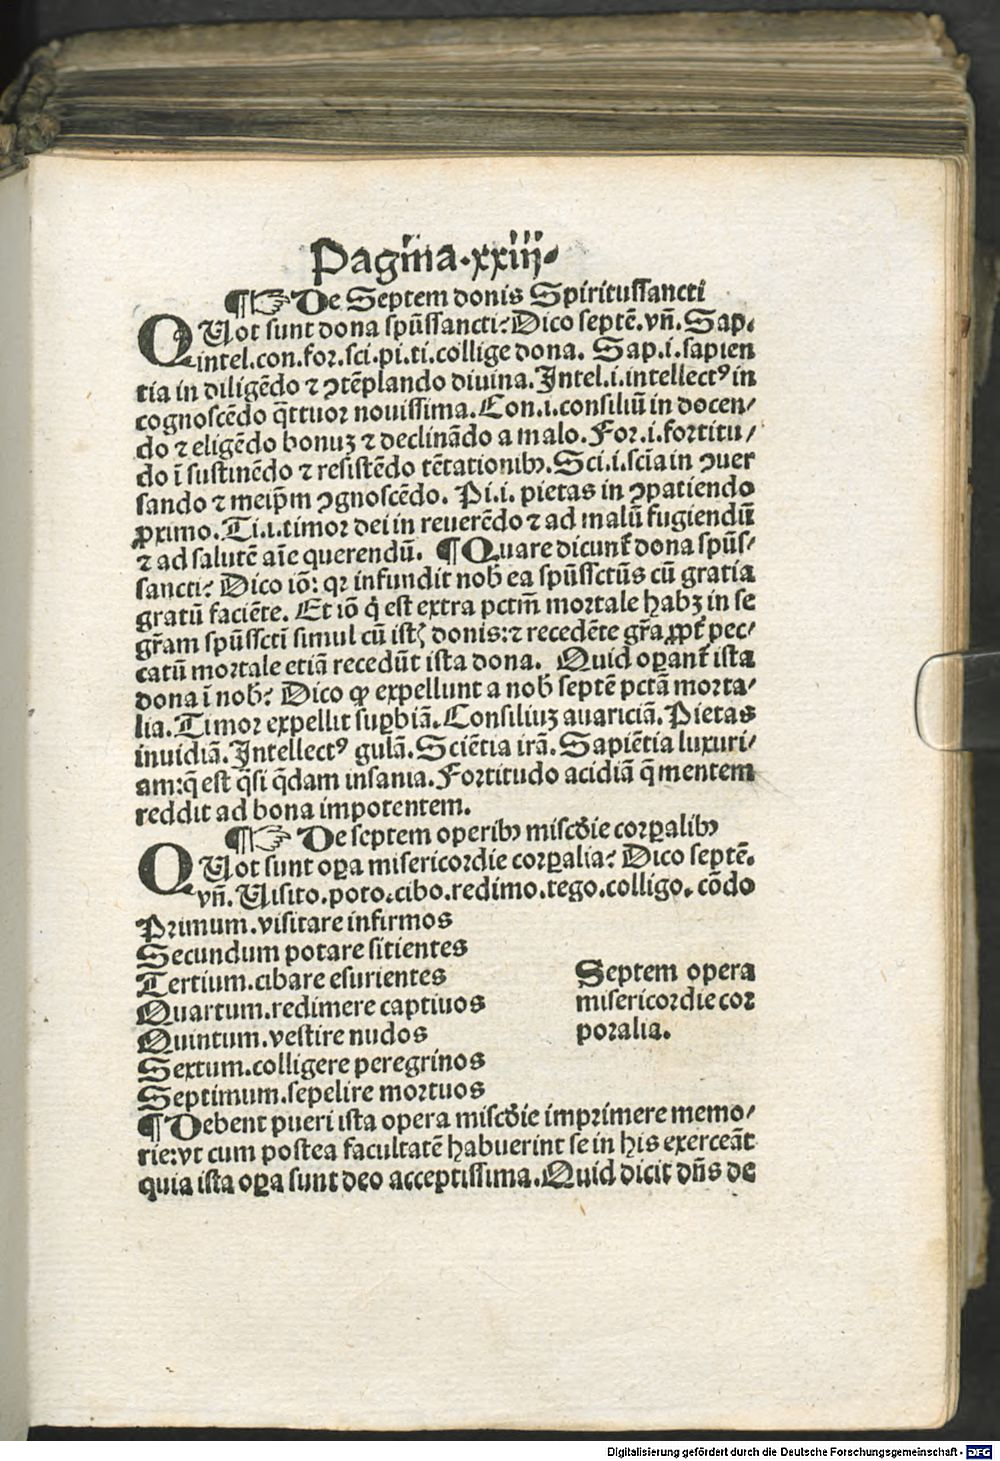 Pagina.xxiij.
¶☞ De Septem donis Spiritussancti
QUot sunt dona spūssancti? Dico septē. vñ. Sap.
intel.con.for.sci.pi.ti.collige dona. Sap.i.sapien
tia in diligēdo ⁊ ꝯtēplando diuina. Intel.i.intellectꝰ in
cognoscēdo q̄ttuor nouissima. Con.i.consiliū in docen/
do ⁊ eligēdo bonuꝫ ⁊ declinādo a malo. For.i.fortitu/
do ī sustinēdo ⁊ resistēdo tētationibꝫ. Sci.i.scīa in ꝯuer
sando ⁊ meip̄m ꝯgnoscēdo. Pi.i. pietas in ꝯpatiendo
ꝓximo. Ti.i.timor dei in reuerēdo ⁊ ad malū fugiendū
⁊ ad salutē aīe querendū. ¶ Quare dicunt̄ dona spūs/
sancti? Dico iō: qꝛ infundit nob̄ ea spūssctūs cū gratia
gratū faciēte. Et iō q̇ est extra pctm̄ mortale habꝫ in se
gr̄am spūssctī simul cū istꝭ donis: ⁊ recedēte gr̄a ꝓpt̄ pec/
catū mortale etiā recedūt ista dona. Quid oꝑant̄ ista
dona ī nob̄? Dico ꝙ expellunt a nob̄ septē pctā morta/
lia. Timor expellit suꝑbiā. Consiliuꝫ auariciā. Pietas
inuidiā. Intellectꝰ gulā. Sciētia irā. Sapiētia luxuri/
am: q̄ est q̄si q̄dam insania. Fortitudo acidiā q̄ mentem
reddit ad bona impotentem.
¶☞ De septem operibꝫ miscd̄ie corꝑalibꝫ
QUot sunt oꝑa misericordie corꝑalia? Dico septē.
vñ. Uisito.poto.cibo.redimo.tego.colligo.cōdo
Primum.visitare infirmos
Secundum potare sitientes
Tertium.cibare esurientes
Quartum.redimere captiuos
Quintum.vestire nudos
Sextum.colligere peregrinos
Septimum.sepelire mortuos
Septem opera
misericordie cor
poralia.
¶ Debent pueri ista opera miscd̄ie imprimere memo/
rie: vt cum postea facultatē habuerint se in his exerceāt
quia ista oꝑa sunt deo acceptissima. Quid dicit dn̄s de
Digitalisierung gefördert durch die Deutsche Forschungsgemeinschaft - DFG